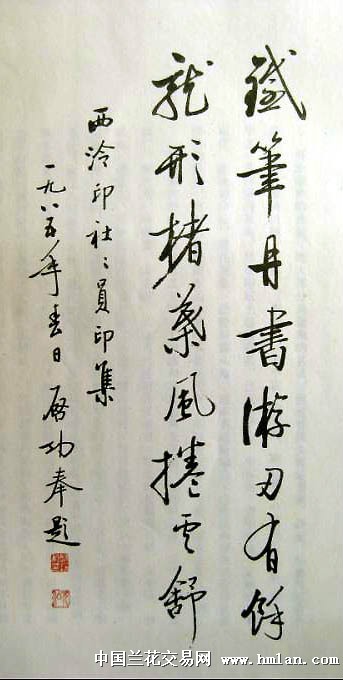 鐵筆丹書游刃有餘
龍形楮葉風捲云舒
西泠印社〻員印集
一九八五年春日 启功奉題
中国兰花交易网 www.hmlan.com